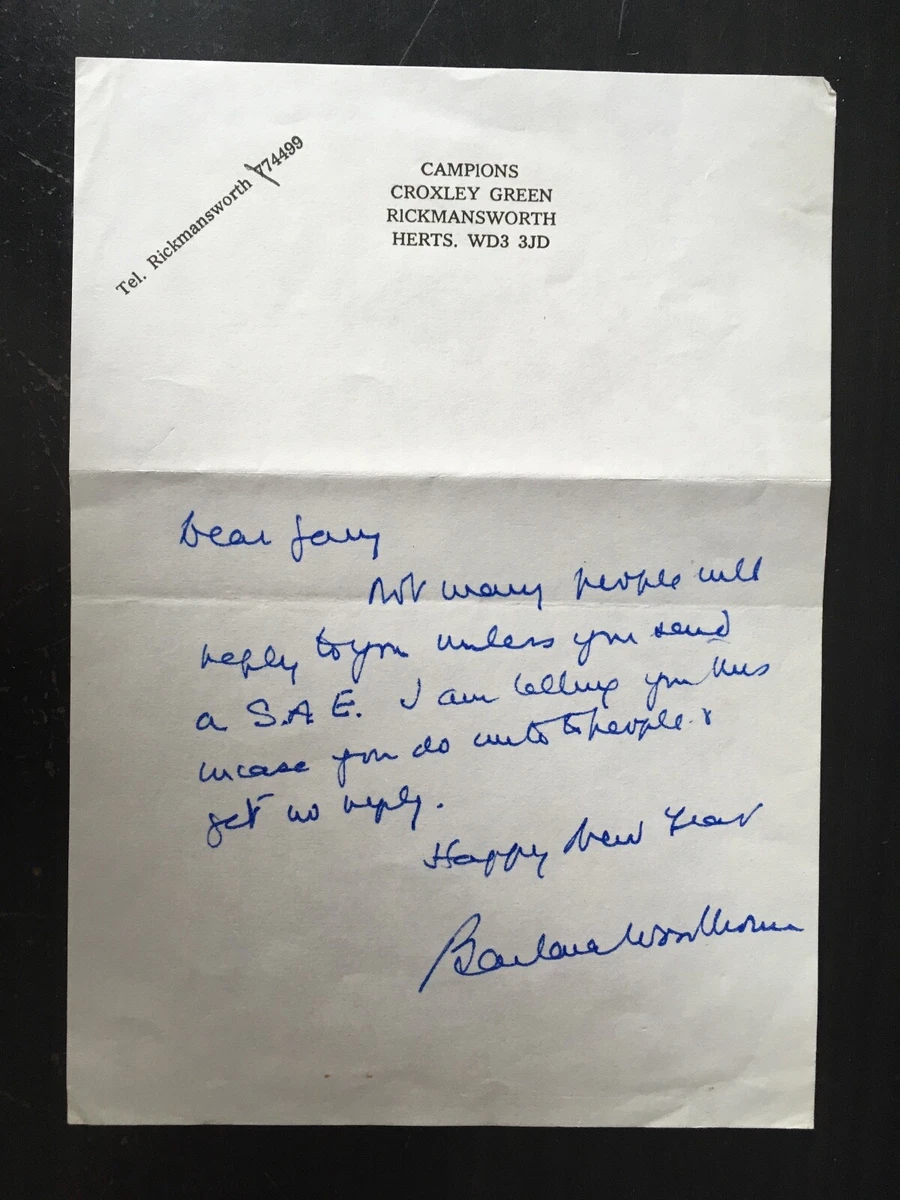 Tel. Rickmansworth 774499
CAMPIONS
CROXLEY GREEN
RICKMANSWORTH
HERTS. WD3 3JD
Dear Gary
Not many people will
reply to you unless you send
a S.A.E. I am telling you this
incase you do write to people &
get no reply.
Happy New Year
Barbara Woodhouse